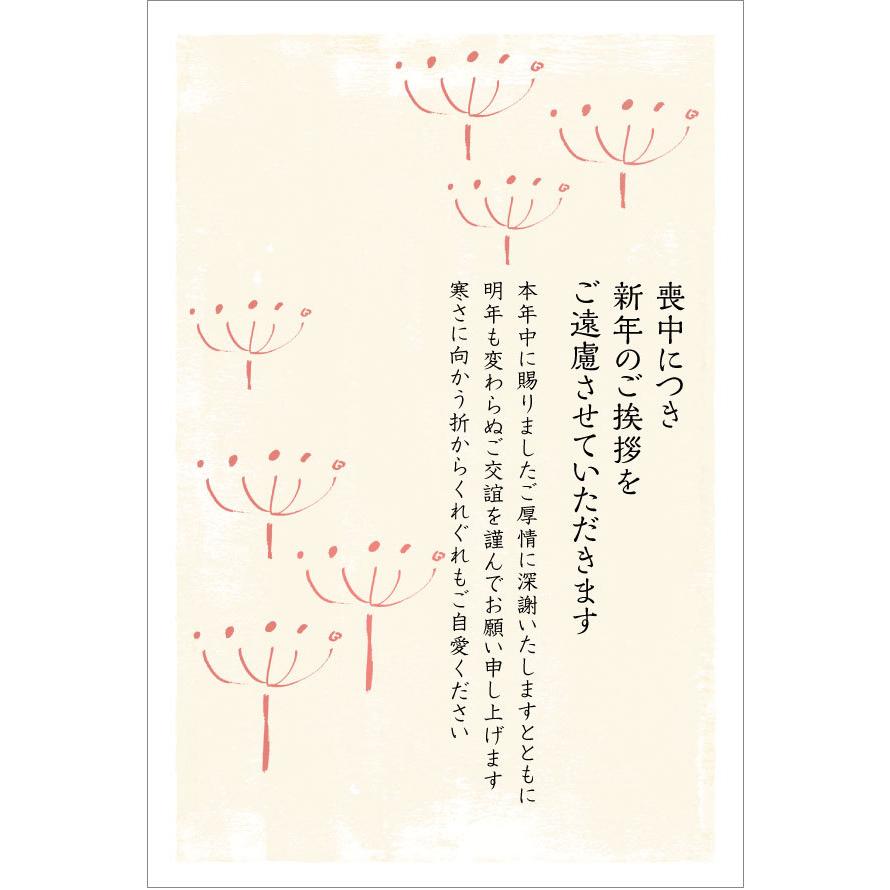 喪中につき
新年のご挨拶を
ご遠慮させていただきます
本年中に賜りましたご厚情に深謝いたしますとともに
明年も変わらぬご交誼を謹んでお願い申し上げます
寒さに向かう折からくれぐれもご自愛ください